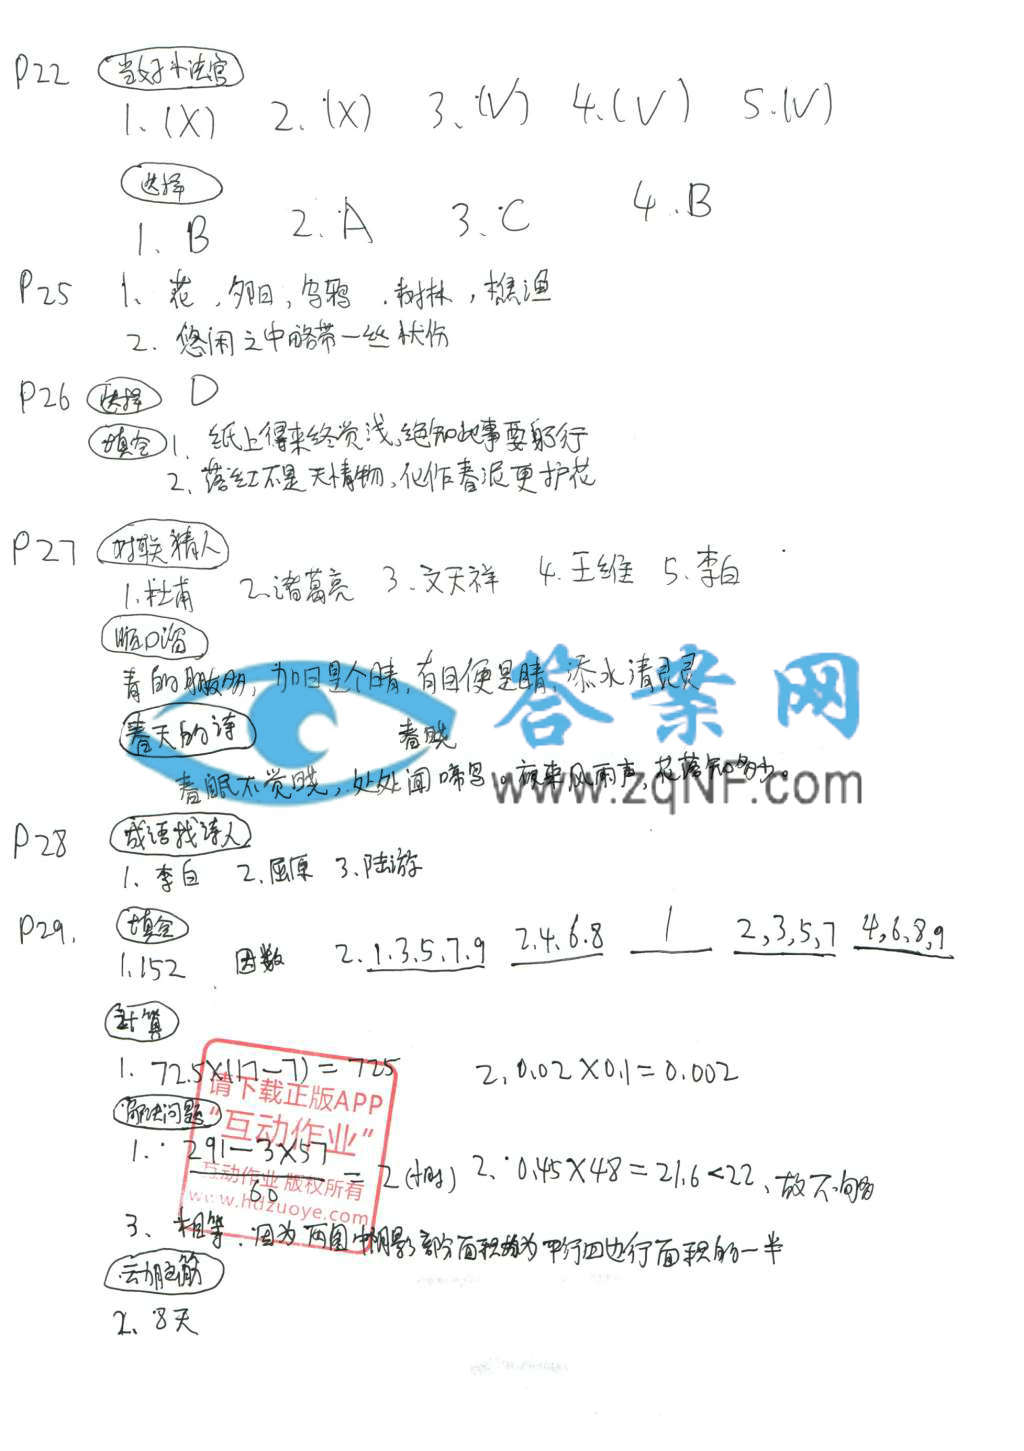 P22 当好小法官
1、(X) 2、(X) 3、(V) 4、(V) 5、(V)
选择
1、B 2、A 3、C 4、B
P25 1、花，夕阳，乌鸦，树林，樵渔
2、悠闲之中略带一丝忧伤
P26 选择 D
填空 1、纸上得来终觉浅，绝知此事要躬行
2、落红不是无情物，化作春泥更护花
P27 对联猜人
1、杜甫 2、诸葛亮 3、文天祥 4、王维 5、李白
顺口溜
青的朋友多，加日是个晴，有目便是睛，添水清灵灵
春天的诗 春晓
春眠不觉晓，处处闻啼鸟。夜来风雨声，花落知多少。
答案网
www.zqNF.com
P28 成语找诗人
1、李白 2、屈原 3、陆游
P29. 填空
1、152 因数 2、1.3.5.7.9 2.4.6.8 1 2,3,5,7 4,6,8,9
计算
1、72.5×(17-7)=725 2、0.02×0.1=0.002
请下载正版APP
"互动作业"
互动作业 版权所有
www.hdzuoye.com
解决问题
1、291-3×57/60=2(小时) 2、0.45×48=21.6<22，故不够
3、相等，因为两图中阴影部分面积均为平行四边行面积的一半
动脑筋
2、8天